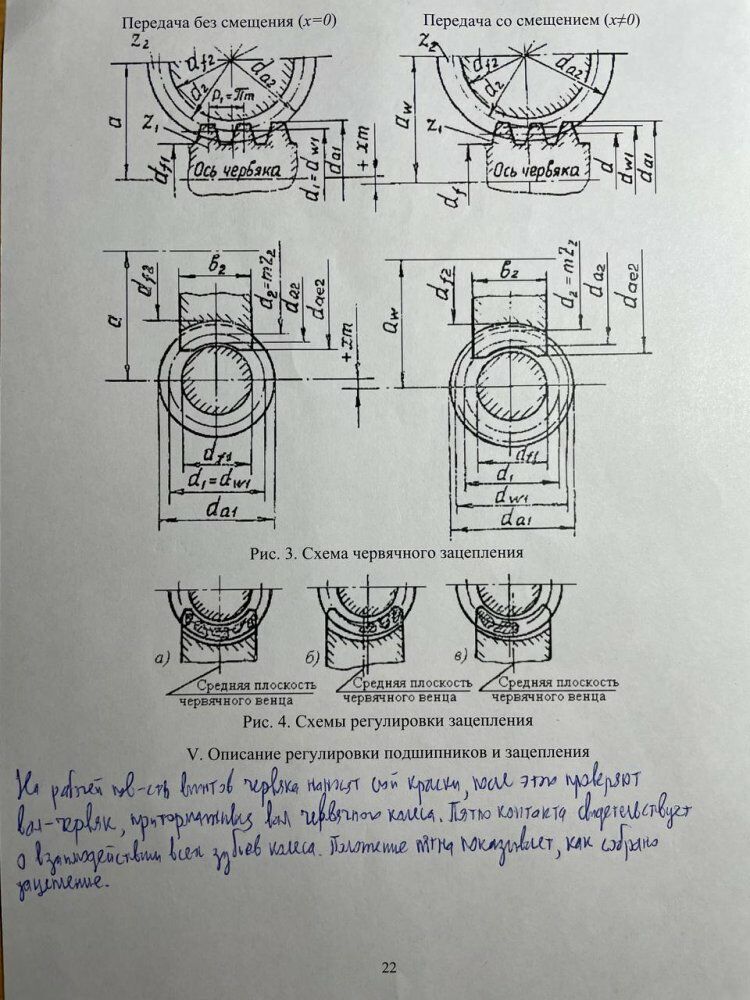 Передача без смещения (x=0)
Передача со смещением (x≠0)
z₂
df2
d2
da2
P₁=πm
a
z₁
df1
Ось червяка
d₁=dw1
da1
+xm
z₂
df2
d2
da2
aw
z₁
df
Ось червяка
d
dw1
da1
a
df2
в₂
d₂=mz₂
da2
dae2
+xm
df1
d₁=dw1
da1
aw
df2
в₂
d₂=mz₂
da2
dae2
df1
d₁
dw1
da1
Рис. 3. Схема червячного зацепления
а)
б)
в)
Средняя плоскость червячного венца
Средняя плоскость червячного венца
Средняя плоскость червячного венца
Рис. 4. Схемы регулировки зацепления
V. Описание регулировки подшипников и зацепления
На рабочей пов-сть винтов червяка наносят слой краски, после этого проверяют
вал-червяк, притормаживая вал червячного колеса. Пятно контакта свидетельствует
о взаимодействии всех зубьев колеса. Положение пятна показывает, как собрано
зацепление.
22